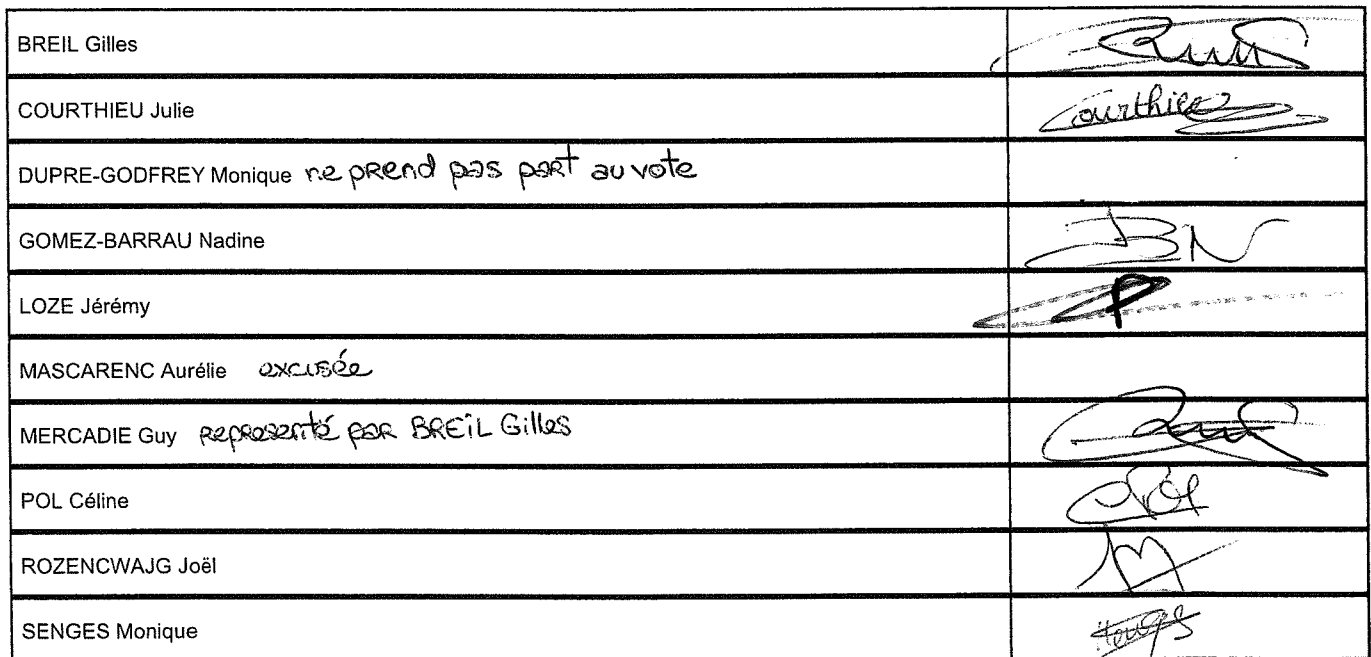 BREIL Gilles
COURTHIEU Julie Courthieu
DUPRE-GODFREY Monique ne prend pas part au vote
GOMEZ-BARRAU Nadine
LOZE Jérémy
MASCARENC Aurélie excusée
MERCADIE Guy représenté par BREIL Gilles
POL Céline
ROZENCWAJG Joël
SENGES Monique